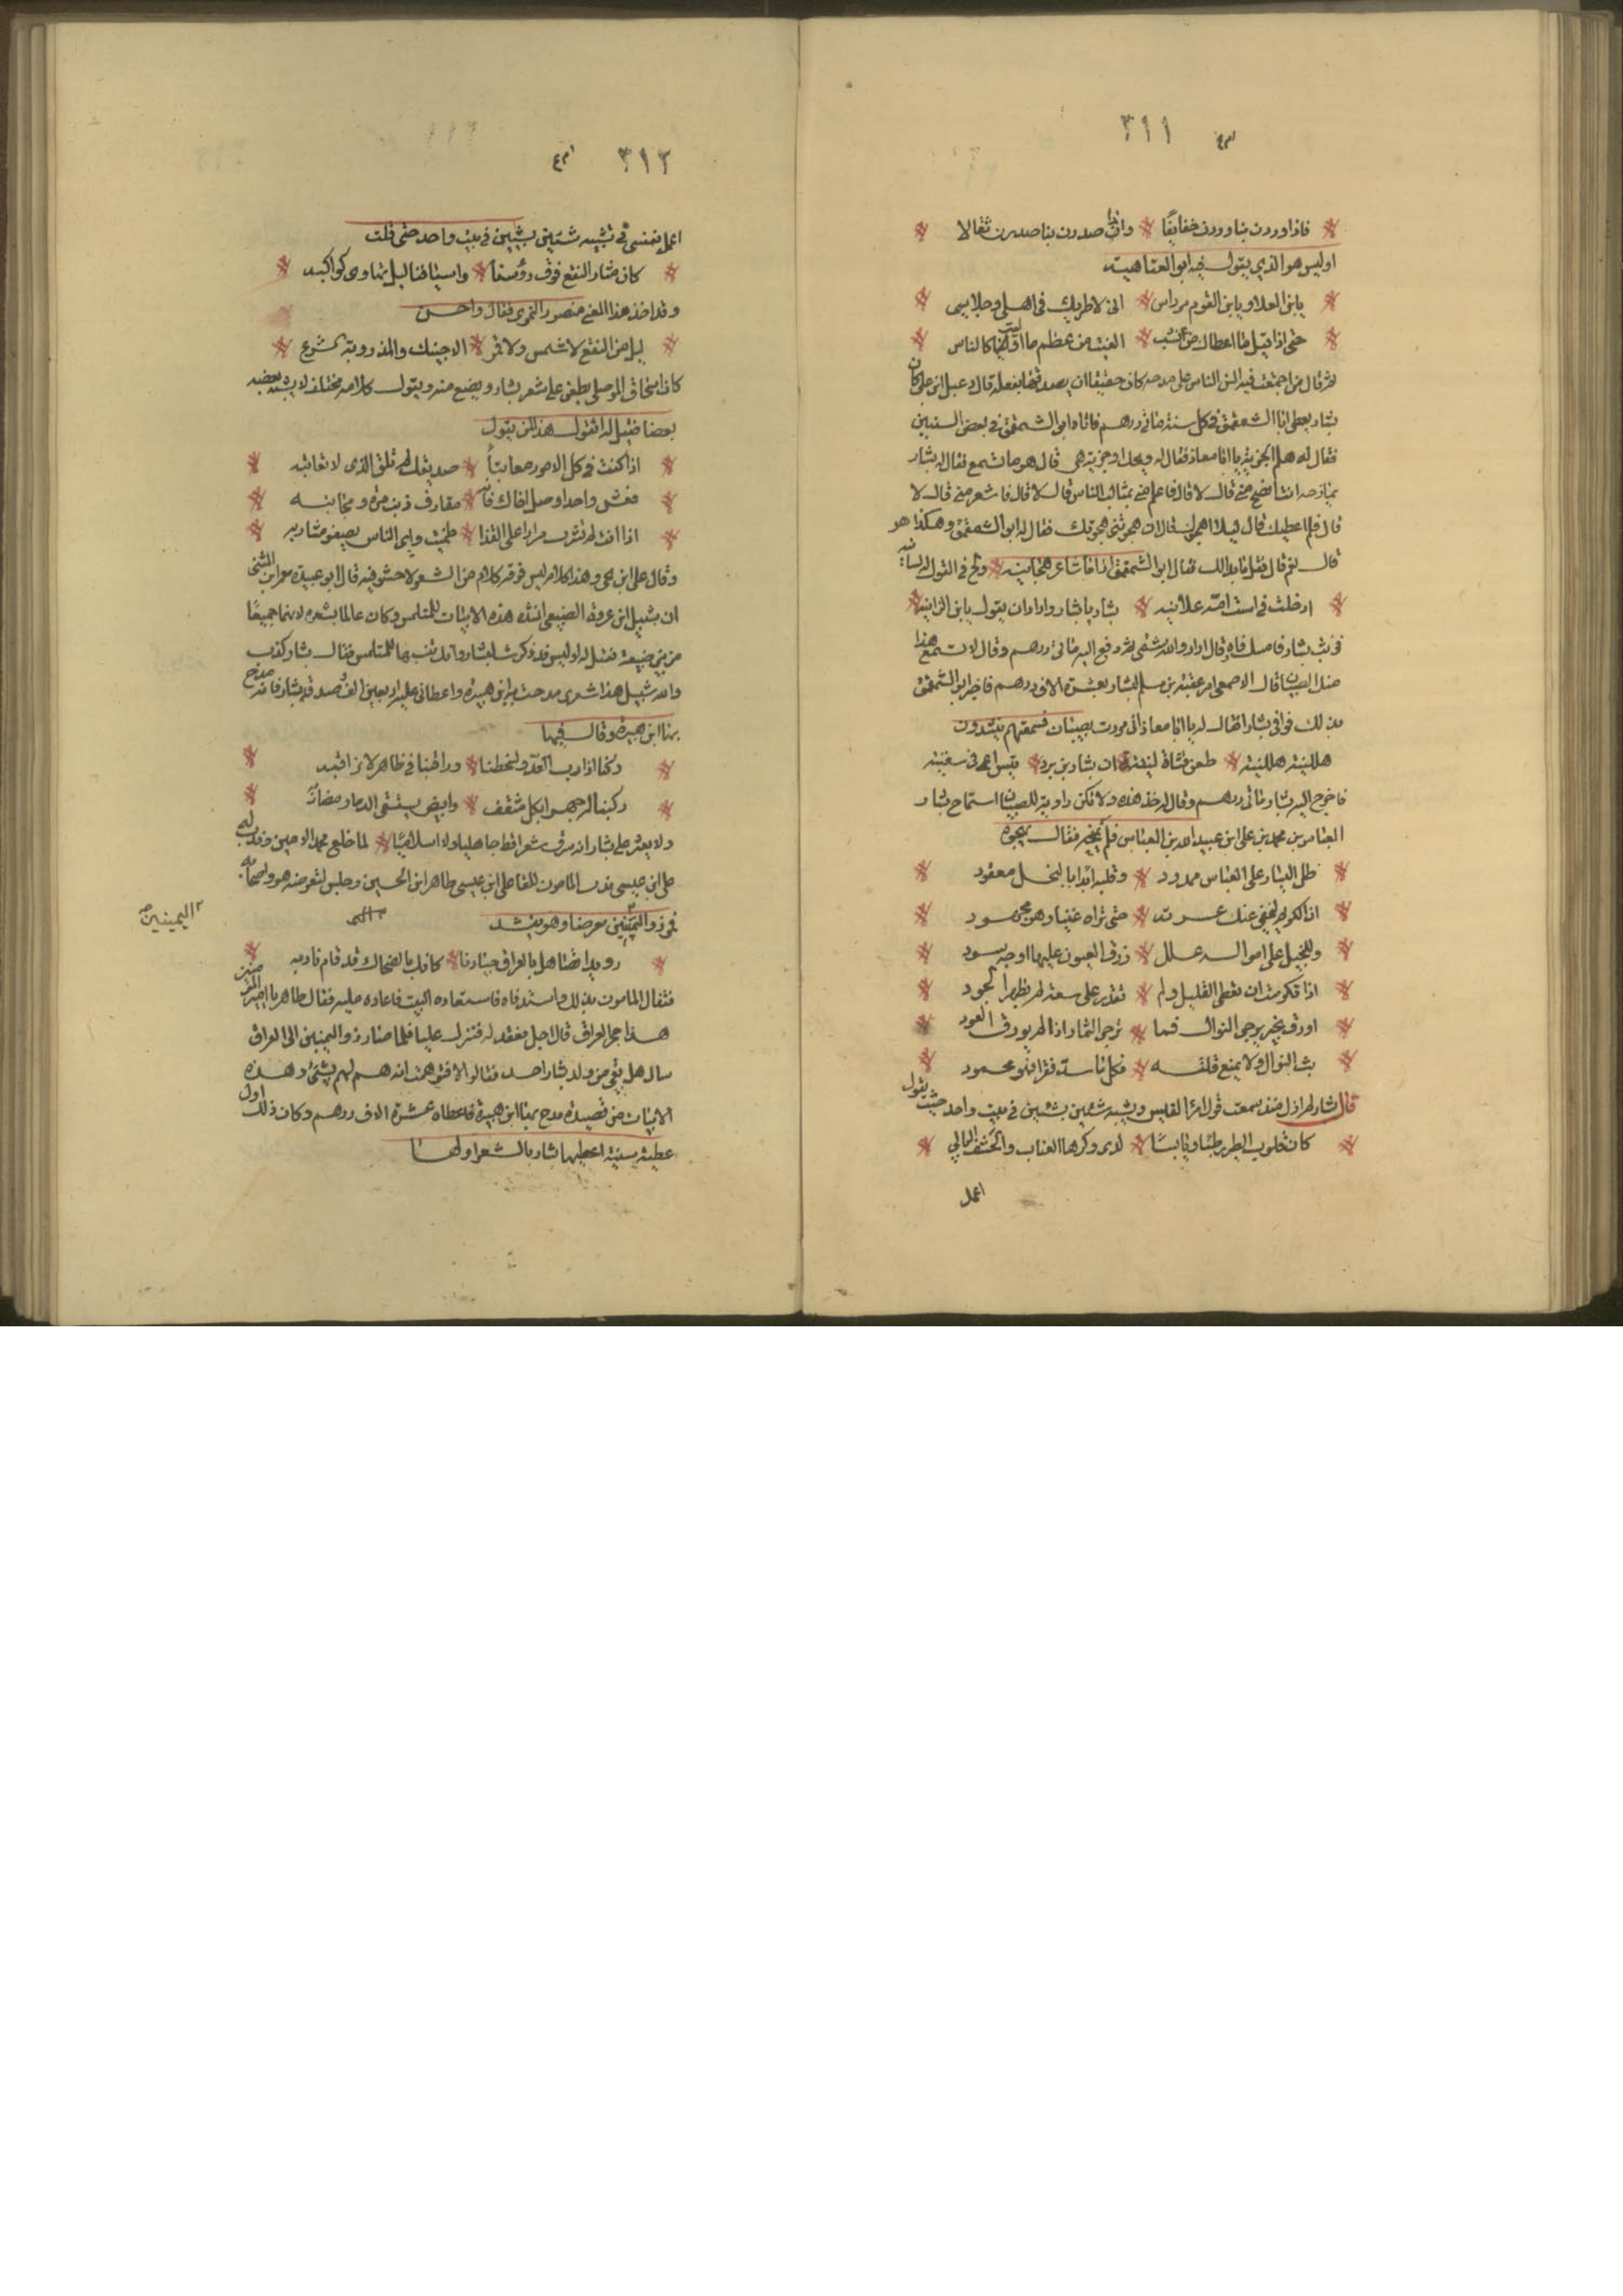 ٣١١
فاذا وردن بنا وردن خفايفا وان صدرن بنا صدرن ثقالا
اوليس هو الذي يقول فيه ابو العتاهية
يا بن العلا ويا بن القوم مرداس انى لاطريك فى اهلى وجلاسى
حتى اذا قيل ما اعطاك من نشب الفيت من عظم ما كالناس
ثم قال من اجتمعت فيه السن الناس على مدحه كان حقيقا ان يصدقها بفعله قال دعبل ابن على كان
بشار يعطى ابا الشمقمق فى كل سنة مائتى درهم فاتاه ابو الشمقمق فى بعض السنين
فقال له هلم الجزية يا ابا معاذ فقال له ويحك اوجزية هى قال هو ما تسمع فقال له بشار
يمازحه انت افصح منى قال لا قال فاعلم منى بمثالب الناس قال لا قال فاشعر منى قال لا
قال فلم اعطيك قال ليلا اهجوك قال ان هجوتنى هجوتك فقال له ابو الشمقمق وهكذا هو
قال نعم قال فقل ما بدا لك فقال ابو الشمقمق انى اذا ما شاعر هجانيه ولج فى القول له لسانيه
ادخلت فى است امه علانيه بشار يا بشار واراد ان يقول يا بن الزانيه
فوثب بشار فامسك فاه وقال اراد والله شتمى ثم دفع اليه مائتى درهم وقال لا تسمع هذا
منك الصبيان قال الاصمعى امر عقبة بن سلم لبشار بعشرة الاف درهم فاخبر ابو الشمقمق
بذلك فوافى بشارا فقال له يا ابا معاذ انى مررت بصبيان فسمعتهم ينشدون
هللينه هللينه طعن قثاة لتينه ان بشار بن برد تيس اعمى فى سفينه
فاخرج اليه بشار مائتى درهم وقال له خذ هذه ولا تكن راوية للصبيان استماح بشار
العباس بن محمد بن على ابن عبيد الله بن العباس فلم يخبر فقال يهجوه
ظل اليسار على العباس ممدود وقلبه ابدا بالبخل معقود
ان الكريم ليخفى عنك عسرته حتى تراه غنيا وهو مجهود
وللبخيل على امواله علل زرق العيون عليها اوجه سود
اذا تكرمت ان تعطى القليل ولم تقدر على سعة لم يظهر الجود
اورق بخير يرجى النوال فما ترجى الثمار اذا لم يورق العود
بث النوال ولا يمنع قلته فكل ما سد فقرا فهو محمود
قال بشار لم ازل منذ سمعت قول امرا القيس ويشبه شيئين بشيئين فى بيت واحد حيث يقول
كان قلوب الطير رطبا ويابسا لدى وكرها العناب والحشف البالي
اعمل
٣١٢
اعمل نفسى فى تشبيه شيئين بشيئين فى بيت واحد حتى قلت
كان مثار النقع فوق رؤسنا واسيافنا ليل تهاوى كواكبه
وقد اخذ هذا المعنى منصور النمرى فقال واحسن
ليل من النقع لا شمس ولا قمر الا جبينك والمذروبة الشرع
كان اسحاق الموصلى يطعن على شعر بشار ويضع منه ويقول كلامه مختلف لا يشبه بعضه
بعضا فقيل له اتقول هذا لمن يقول
اذا كنت فى كل الامور معاتبا صديقك لم تلق الذى لا تعاتبه
فعش واحدا او صل اخاك فانه مقارف ذنب مرة ومجانبه
اذا انت لم تشرب مرارا على القذا ظمئت واى الناس تصفو مشاربه
وقال على ابن يحيى وهذا كلام ليس فوقه كلام من الشعر ولا حشو فيه قال ابو عبيدة معمر ابن المثنى
ان شبيل ابن عروة الضبيعى انشده هذه الابيات للمتلمس وكان عالما بشعره لانهما جميعا
من بنى ضبيعة فقيل له اوليس قد ذكرت لبشار انها للمتلمس فقال بشار كذب
والله شبيل هذا شعرى مدحت به ابن هبيرة واعطانى عليه اربعين الفا وصدق بشار فانه مدح
بها ابن هبيرة وقال فيها
وكنا اذا دب العدو لسخطنا وراقبنا فى ظاهر لا نراقبه
ركبنا له جهرا بكل مثقف وابيض يستسقى الدماء مضاربه
ولا يعثر على بشار انه سرق شعرا قط جاهليا ولا اسلاميا لما خلع محمد الامين وندب
على ابن عيسى ندب المامون للقا على ابن عيسى طاهر ابن الحسين وجلس لتعرضه هو واصحابه
فمر ذو اليمينين معرضا وهو ينشد
اليمينين
رويدا تصاهل بالعراق جيادنا كانك بالضحاك قد قام نادبه
فتفال المامون بذلك واستدناه فاستعاده البيت فاعاده عليه فقال طاهر يا امير المؤمنين
هذا حجر العراق قال اجل فعقد له فنزل عليها فلما صار ذو اليمينين الى العراق
سال هل بقى من ولد بشار احد فقالوا لا فتوهمت انه هم لهم بشئ وهذه
الابيات من قصيدة مدح بها ابن هبيرة فاعطاه عشرة الاف درهم وكان ذلك اول
عطية سنية اعطيها بشار بالشعر اولها